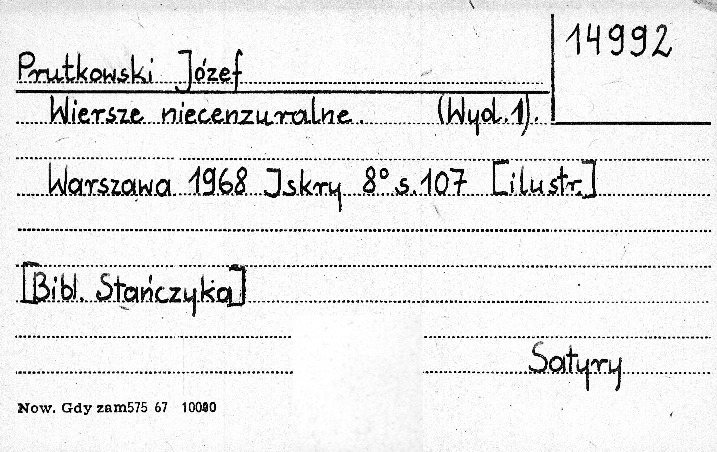 14992
Prutkowski Józef
Wiersze niecenzuralne. (Wyd. 1).
Warszawa 1968 Iskry 8° s. 107 [ilustr.]
[Bibl. Stańczyka]
Satyry
Now. Gdy zam 575 67 10000